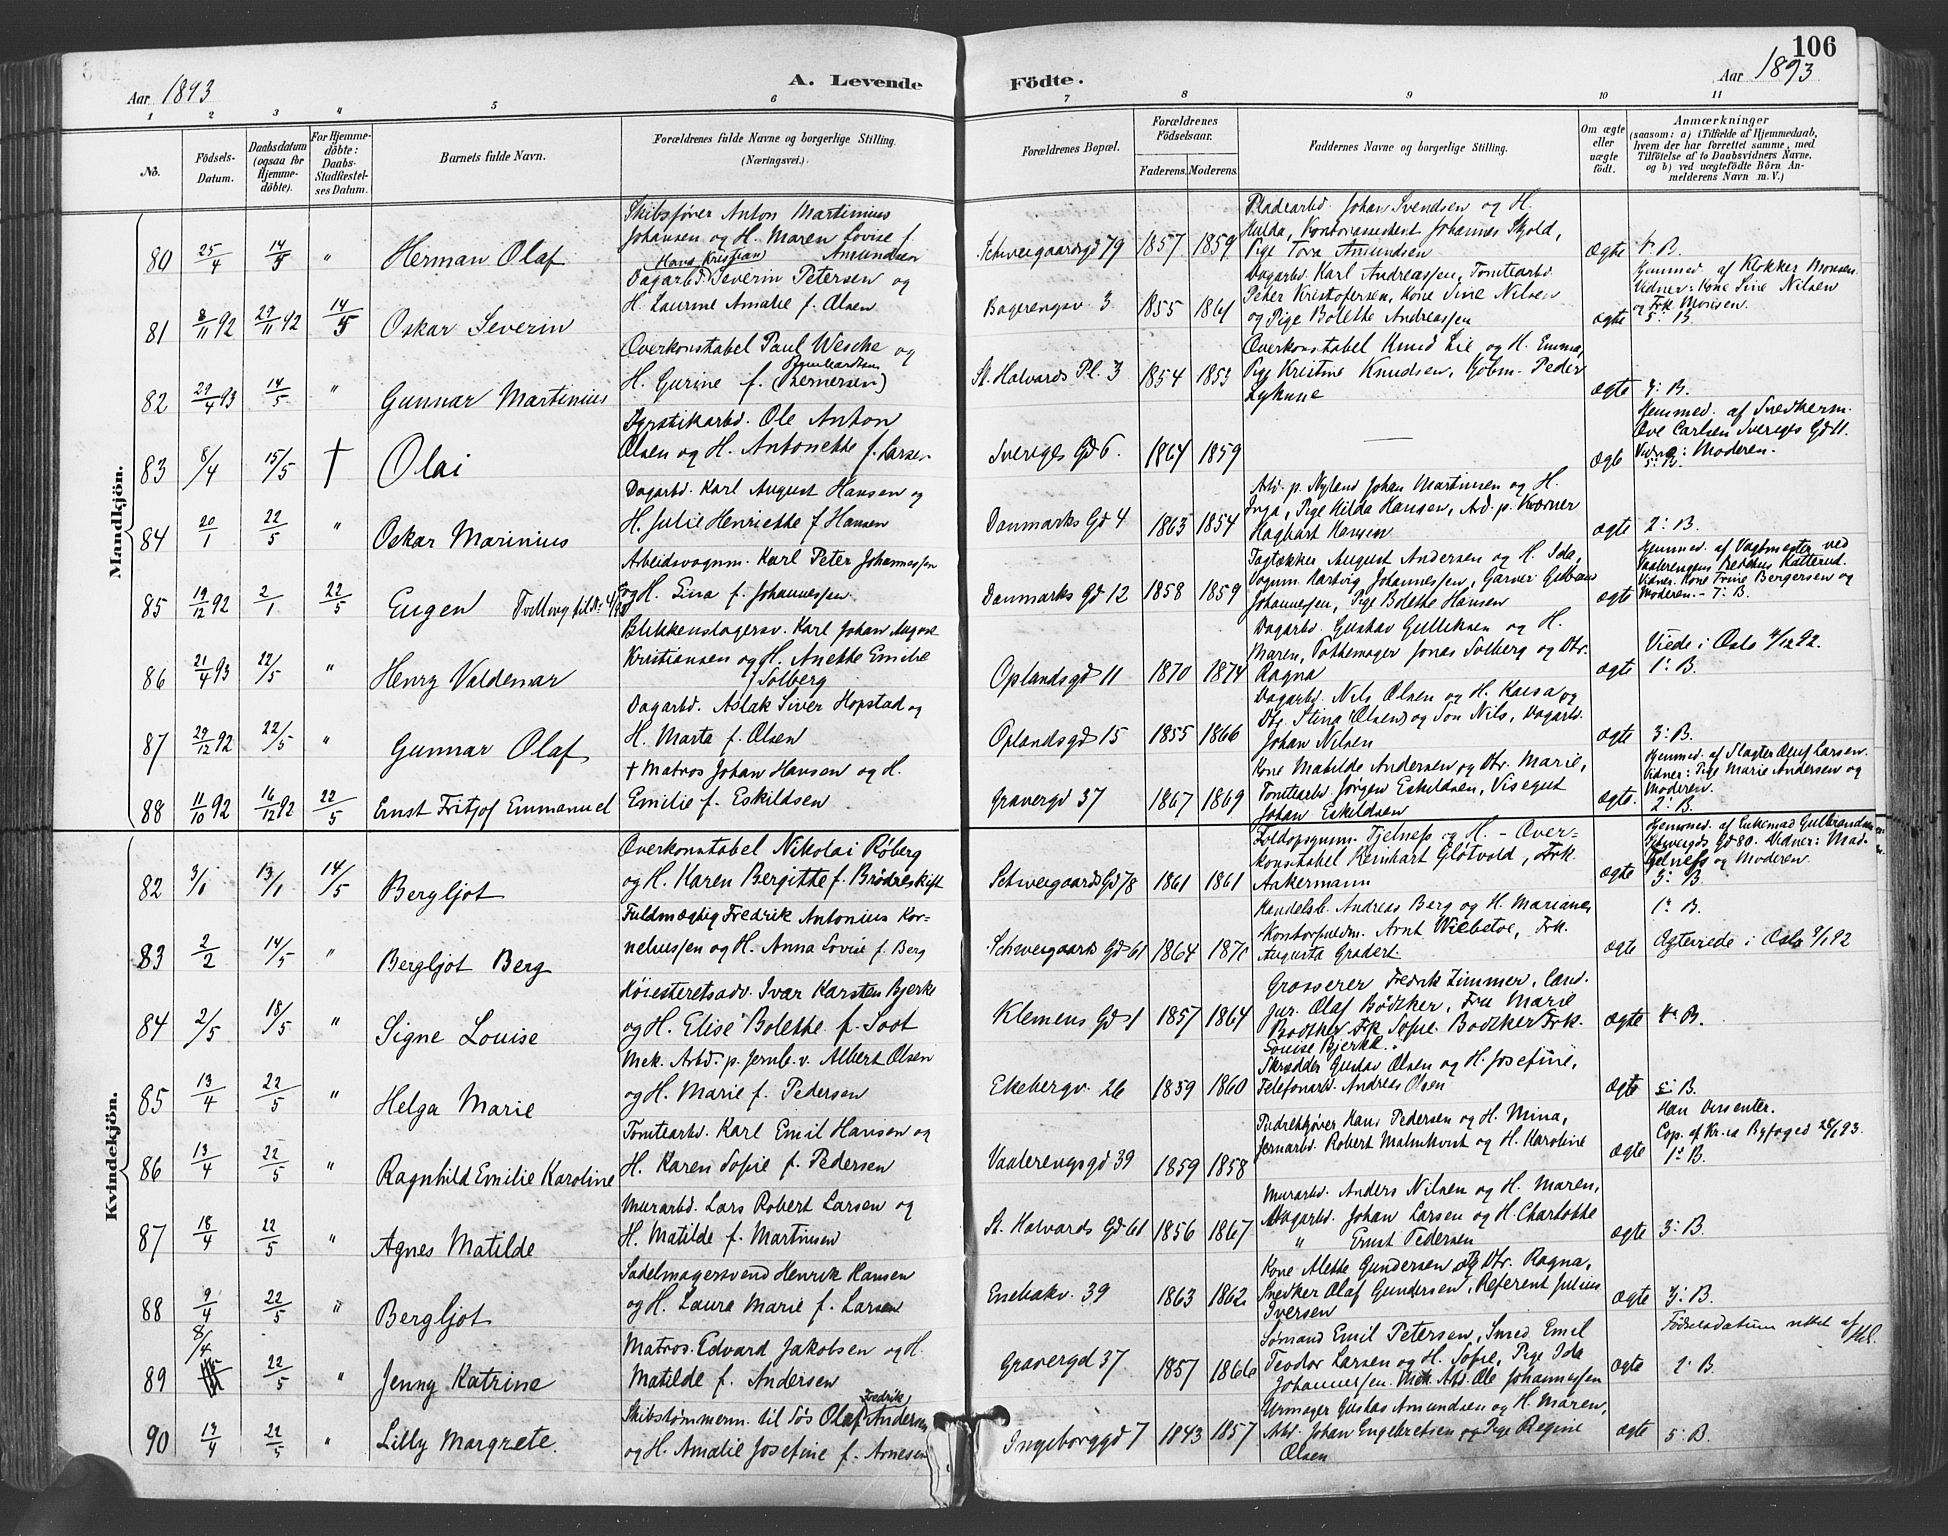 106
Aar 1893
A. Levende
Födte.
Aar 1893
1 2 3 4 5 6 7 8 9 10 11
No.
Födsels-Datum.
Daabsdatum (ogsaa for Hjemme-döbte).
For Hjemme-döbte: Daabs-Stadfæstel-ses Datum.
Barnets fulde Navn.
Forældrenes fulde Navne og borgerlige Stilling. (Næringsvei.)
Forældrenes Bopæl.
Forældrenes Födselsaar.
Faderens. Moderens.
Faddernes Navne og borgerlige Stilling.
Om ægte eller uægte födt.
Anmærkninger
(saasom: a) i Tilfælde af Hjemmedaab,
hvem der har forrettet samme, med
Tilföielse af to Daabsvidners Navne,
og b) ved uægtefödte Börn An-
melderens Navn m. V.)
Mandkjön.
80 25/4 14/5 " Herman Olaf
Skibsfører Anton Martinius
Johansen og H. Maren Lovise f.
Amundsen
Schweigaardsgd 79 1857 1859
Pladearbd. Johan Svendsen og H.
Hulda, Kontorassistent Johannes Skjold,
Pige Tora Amundsen
ægte 4: B.
81 8/11 92 29/11 92 14/5 Oskar Severin
(Hans Kristian)
Dagarbd. Severin Petersen og
H. Laurine Amalie f. Olsen
Bogerengsv. 3 1855 1861
Dagarbd. Karl Andreassen, Tomtearbd
Peter Kristofersen, Kone Sine Nilsen
og Pige Bolette Andreassen
ægte
Hjemmed. af Klokker Monsen.
Vidner: Kone Sine Nilsen
og Frk. Monsen.
5: B.
82 29/4 93 14/5 " Gunnar Martinius
Overkonstabel Paul Wesche og
H. Gurine f.
St. Halvards Pl. 3 1854 1853
Overkonstabel Knud Lie og H. Emma,
Pige Kristine Knudsen, Kjøbm. Peder
Lykune
ægte 3: B.
83 8/4 15/5 † Olai
Fyrstikarbd. Ole Anton
Olsen og H. Antonette f. Larsen
Sveriges Gd 6. 1864 1859
—
ægte
Hjemmed. af Snedkerm.
Ove Carlsen Sveriges Gd 11.
Vidne: Moderen.
5: B.
84 20/1 22/5 " Oskar Marinius
Dagarbd. Karl August Hansen og
H. Julie Henriette f. Hansen
Danmarks Gd 4 1863 1854
Arbd. p. Nyland Johan Martinsen og H.
Inga, Pige Hilda Hansen, Ad. p. Kværner
Hagbart Hansen
ægte 2: B.
85 19/12 92 2/1 22/5 Eugen
Arbeidsvognm. Karl Peter Johannessen
og H. Lina f. Johannessen
Danmarks Gd 12 1858 1859
Tagtækker August Andersen og H. Ida,
Vognm. Hartvig Johannessen, Garver
Johannessen, Pige Bolette Hansen
ægte
Hjemmed. af Vagtmester ved
Vaalerengens
Vidner: Kone Trine Bergersen og
Moderen. - 7: B.
86 21/4 93 22/5 " Henry Valdemar
Blikkenslagersv. Karl Johan August
Kristiansen og H. Anette Emilie
f. Solberg
Oplandsgd 11 1870 1874
Dagarbd. Gustav Gulliksen og H.
Maren, Pottemager Jonas Solberg og Dtr.
Ragna
ægte
Viede i Oslo 4/12 92.
1: B.
87 29/12 92 22/5 " Gunnar Olaf
Dagarbd. Aslak Siver Hopstad og
H. Marta f. Olsen
Oplandsgd 15 1855 1866
Dagarbd. Nils Olsen og H. Kaisa og
Dtr. Stina (Olsen) og Søn Nils, Dagarbd.
Johan Nilsen
ægte 3: B.
88 11/10 92 16/12 92 22/5 Ernst Fritjof Emmanuel
† Matros Johan Hansen og H.
Emilie f. Eskildsen
Gravergd 37 1867 1869
Kone Matilde Andersen og Dtr. Marie,
Tomtearbd. Jørgen Eskildsen, Visegut
Johan Eskildsen
ægte.
Hjemmed. af Slagter Oluf Larsen.
Vidner: Pige Marie Andersen og
Moderen.
2: B.
Kvindekjön.
82 3/1 13/1 14/5 Bergljot
Overkonstabel Nikolai Røberg
og H. Karen Bergitte f. Brødreskift
Schweigaards Gd 78 1861 1861
Tjelness og H. - Over-
konstabel Reinhart Gløtvold, Frk.
Aakermann
ægte
Hjemmed. af Enkemad. Gulbrandsen
Schweigds Gd 80. Vidner: Mad.
Tjelness og Moderen
3: B.
83 2/2 14/5 " Bergljot Berg
Fuldmægtig Fredrik Antonius Kor-
neliussen og H. Anna Lovise f. Berg
Schweigaards Gd 61 1864 1871
Handelsb. Andreas Berg og H. Mariane,
Kontorfuldm. Arnt Wiebstoe, Frk.
Augusta Gradert.
ægte
1: B.
Ægteviede i Oslo 9/1 92
84 2/5 18/5 " Signe Louise
Høiesteretsadv. Ivar Karsten Bjerke
og H. Elise Bolette f. Soot
Klemens Gd 1 1857 1864
Grosserer Fredrik Zimmer, Cand.
jur. Olaf Bødtker, Fru Marie
Bødtker Frk. Sofie Bødtker Frk.
Louise Bjerke.
ægte 4: B.
85 13/4 22/5 " Helga Marie
Mek. Arbd. p. Jernb. v. Albert Olsen
og H. Marie f. Pedersen
Ekebergv. 26 1859 1860
Skrædder Gustav Olsen og H. Josefine,
Telefonarbd. Andreas Olsen
ægte 5: B.
86 13/4 22/5 " Ragnhild Emilie Karoline
Tomtearbd. Karl Emil Hansen og
H. Karen Sofie f. Pedersen
Vaalerengsgd 39 1859 1858
Hans Pedersen og H. Mina,
Jernarbd. Robert Malmkvist og H. Karoline
ægte
Han Dissenter.
Cop. af Kr.ia Byfoged 28/1 93.
1: B.
87 18/4 22/5 " Agnes Matilde
Murarbd. Lars Robert Larsen og
H. Matilde f. Martinsen
St. Halvards Gd 61 1856 1867
Murarbd. Anders Nilsen og H. Maren,
Dagarbd. Johan Larsen og H. Charlotte
" Ernst Pedersen
ægte 3: B.
88 9/4 22/5 " Bergljot
Sadelmagersvend Henrik Hansen
og H. Laura Marie f. Larsen
Enebakv. 39 1863 1862
Kone Alette Gundersen og Dtr. Ragna,
Snedker Olaf Gundersen, Referent Julius
Iversen
ægte 3: B.
89 8/4 22/5 " Jenny Katrine
Matros Edvard Jakobsen og H.
Matilde f. Andersen
Gravergd 37 1857 1866
Sømand Emil Petersen, Smed Emil
Teodor Larsen og H. Sofie, Pige Ida
Johannessen. Mek. Arb. Ole Johannessen
ægte
Fødselsdatum rettet af
2: B.
90 13/4 22/5 " Lilly Margrete.
Skibstømmerm. til Søs Olaf Fredrik Andersen
og H. Amalie Josefine f. Arnesen
Ingeborggd 7 1843 1857
Urmager Gustav Amundsen og H. Maren,
Arbd. Johan Engebretsen og Pige Regine
Olsen
ægte 5: B.